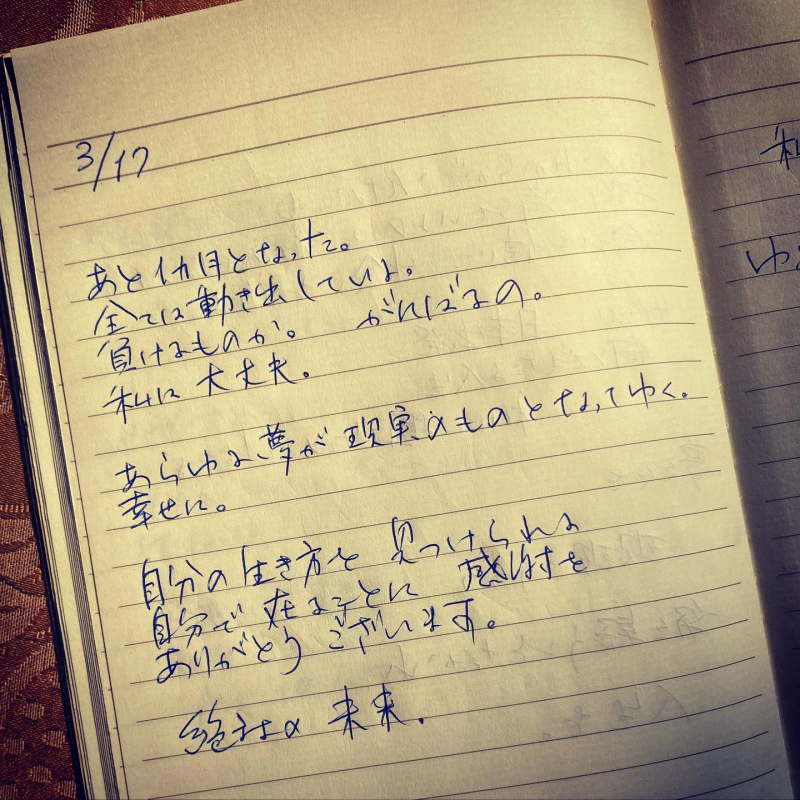 3/17
あと1ヵ月となった。
全ては動き出している。
負けるものか。 がんばるの。
私は大丈夫。
あらゆる夢が現実のものとなってゆく。
幸せに。
自分の生き方を見つけられる
自分で在ることに 感謝を
ありがとうございます。
絶対の未来.
私
ゆ